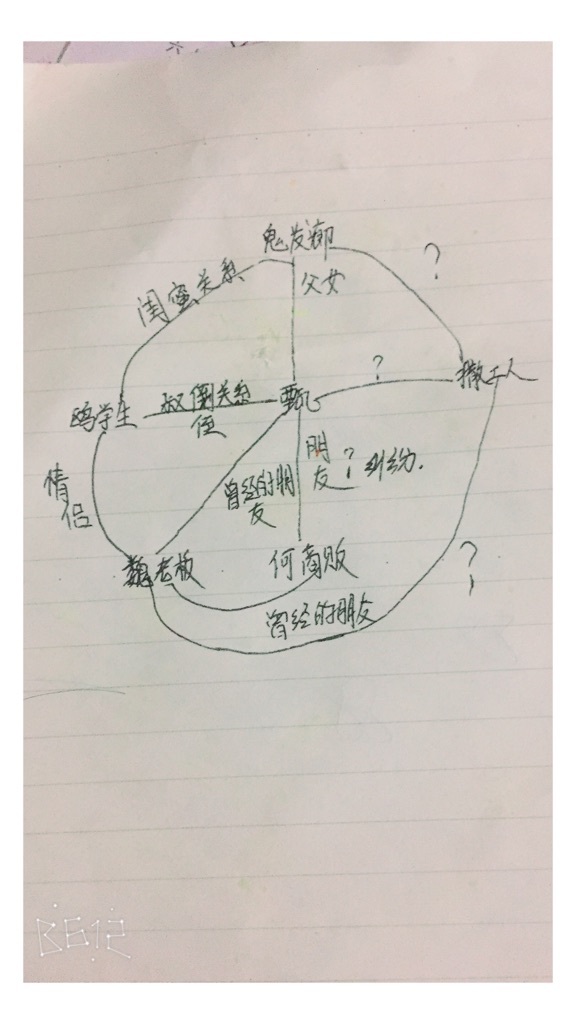 鬼发廊
?
父女
闺蜜关系
?
撒工人
鸥学生
叔侄关系
侄
甄
朋友
?纠纷.
曾经的朋友
情侣
魏老板
何商贩
?
曾经的朋友
B612